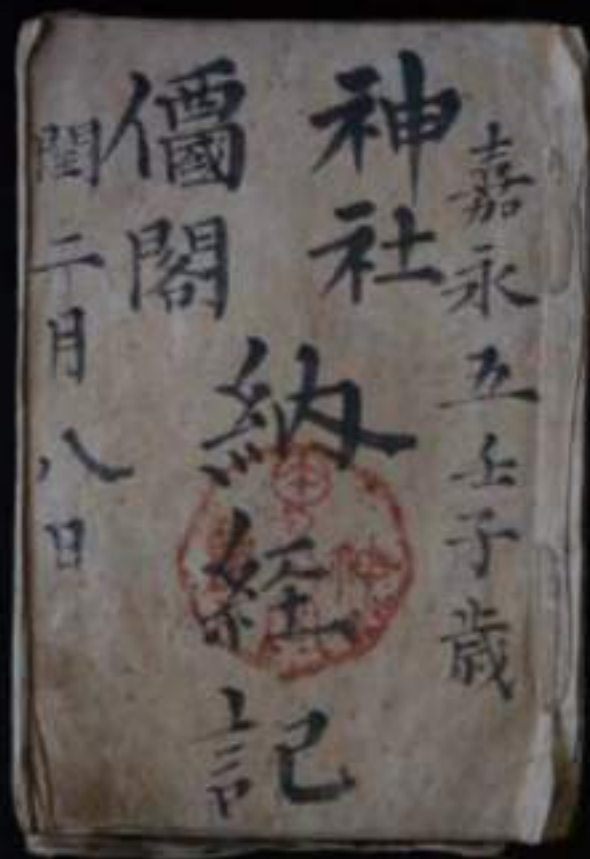 嘉永五壬子歳
神社
閣
納経記
閏二月八日